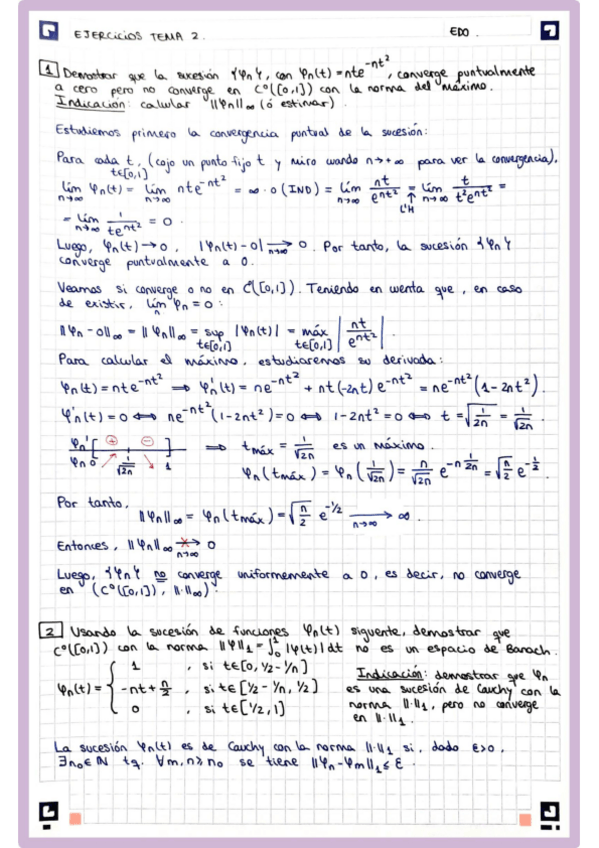 EJERCICIOS TEMA 2.
EDO.
1 Demostrar que la sucesión {φn}, con φn(t) = nte^{-nt²}, converge puntualmente
a cero pero no converge en C⁰([0,1]) con la norma del máximo.
Indicación: calcular ||φn||∞ (ó estimar).
Estudiemos primero la convergencia puntual de la sucesión:
Para cada t, (cojo un punto fijo t y miro cuando n→+∞ para ver la convergencia),
t∈[0,1]
lím n→∞ φn(t) = lím n→∞ nte^{-nt²} = ∞·0 (IND) = lím n→∞ nt/e^{nt²} = lím n→∞ t/t²e^{nt²} =
L'H
= lím n→∞ 1/te^{nt²} = 0.
Luego, φn(t)→0, |φn(t)-0| →n→∞ 0. Por tanto, la sucesión {φn}
converge puntualmente a 0.
Veamos si converge o no en C⁰([0,1]). Teniendo en cuenta que, en caso
de existir, lím n φn = 0:
||φn - 0||∞ = ||φn||∞ = sup t∈[0,1] |φn(t)| = máx t∈[0,1] |nt/e^{nt²}|.
Para calcular el máximo, estudiaremos su derivada:
φn(t) = nte^{-nt²} ⟹ φn'(t) = ne^{-nt²} + nt(-2nt)e^{-nt²} = ne^{-nt²}(1-2nt²).
φn'(t) = 0 ⟺ ne^{-nt²}(1-2nt²) = 0 ⟺ 1-2nt² = 0 ⟺ t = √(1/2n) = 1/√2n.
φn' [ + - ] ⟹ tmáx = 1/√2n es un máximo.
φn 0 1/√2n 1 φn(tmáx) = φn(1/√2n) = n/√2n e^{-n 1/2n} = √(n/2) e^{-1/2}.
Por tanto,
||φn||∞ = φn(tmáx) = √(n/2) e^{-1/2} →n→∞ ∞.
Entonces, ||φn||∞ ↛n→∞ 0
Luego, {φn} no converge uniformemente a 0, es decir, no converge
en (C⁰([0,1]), ||·||∞).
2 Usando la sucesión de funciones φn(t) siguiente, demostrar que
C⁰([0,1]) con la norma ||φ||₁ = ∫₀¹ |φ(t)| dt no es un espacio de Banach.
φn(t) = { 1 , si t∈[0, 1/2 - 1/n]
-nt + n/2 , si t∈[1/2 - 1/n, 1/2]
0 , si t∈[1/2, 1]
Indicación: demostrar que φn
es una sucesión de Cauchy con la
norma ||·||₁, pero no converge
en ||·||₁.
La sucesión φn(t) es de Cauchy con la norma ||·||₁ si, dado ε>0,
∃n₀∈ℕ tq. ∀m,n≥n₀ se tiene ||φn-φm||₁ ≤ ε.